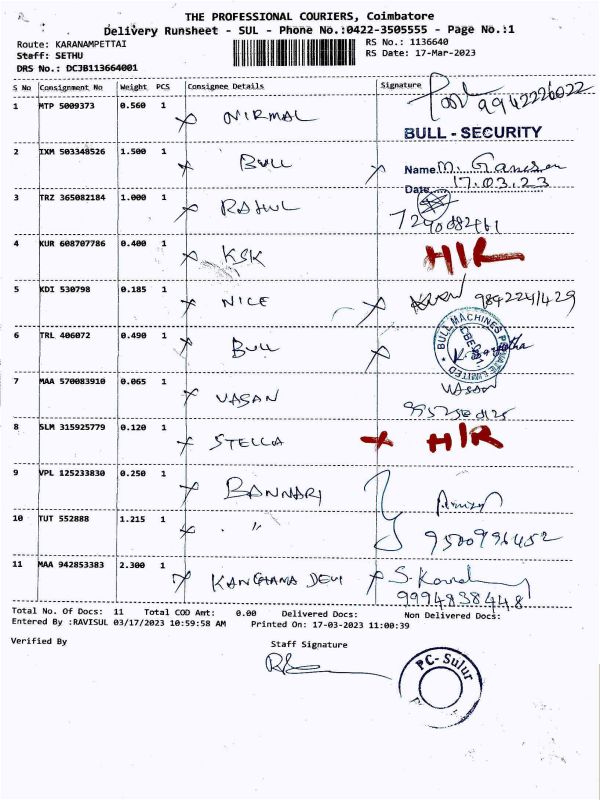 THE PROFESSIONAL COURIERS, Coimbatore
Delivery Runsheet - SUL - Phone No.:0422-3505555 - Page No.:1
Route: KARANAMPETTAI
RS No.: 1136640
Staff: SETHU
RS Date: 17-Mar-2023
DRS No.: DCJB113664001
S No Consignment No Weight PCS Consignee Details Signature
1 MTP 5009373 0.560 1 NIRMAL 9942226022
BULL - SECURITY
2 IXM 503348526 1.500 1 BULL Name M. Ganesan
Date 17.03.23
3 TRZ 365082184 1.000 1 RAHUL 7290082461
4 KUR 608707786 0.400 1 KSK H/R
5 KDI 530798 0.185 1 NICE 9842241429
6 TRL 406072 0.490 1 BULL BULL MACHINES PRIVATE LIMITED
7 MAA 570083910 0.065 1 VASAN VASAN
8 SLM 315925779 0.120 1 STELLA H/R
9 VPL 125233830 0.250 1 BANNARI
10 TUT 552888 1.215 1 " 9500996452
11 MAA 942853383 2.300 1 KANCHAMA DEVI
9994838448
Total No. Of Docs: 11 Total COD Amt: 0.00 Delivered Docs: Non Delivered Docs:
Entered By :RAVISUL 03/17/2023 10:59:58 AM Printed On: 17-03-2023 11:00:39
Verified By Staff Signature
PC- Sulur